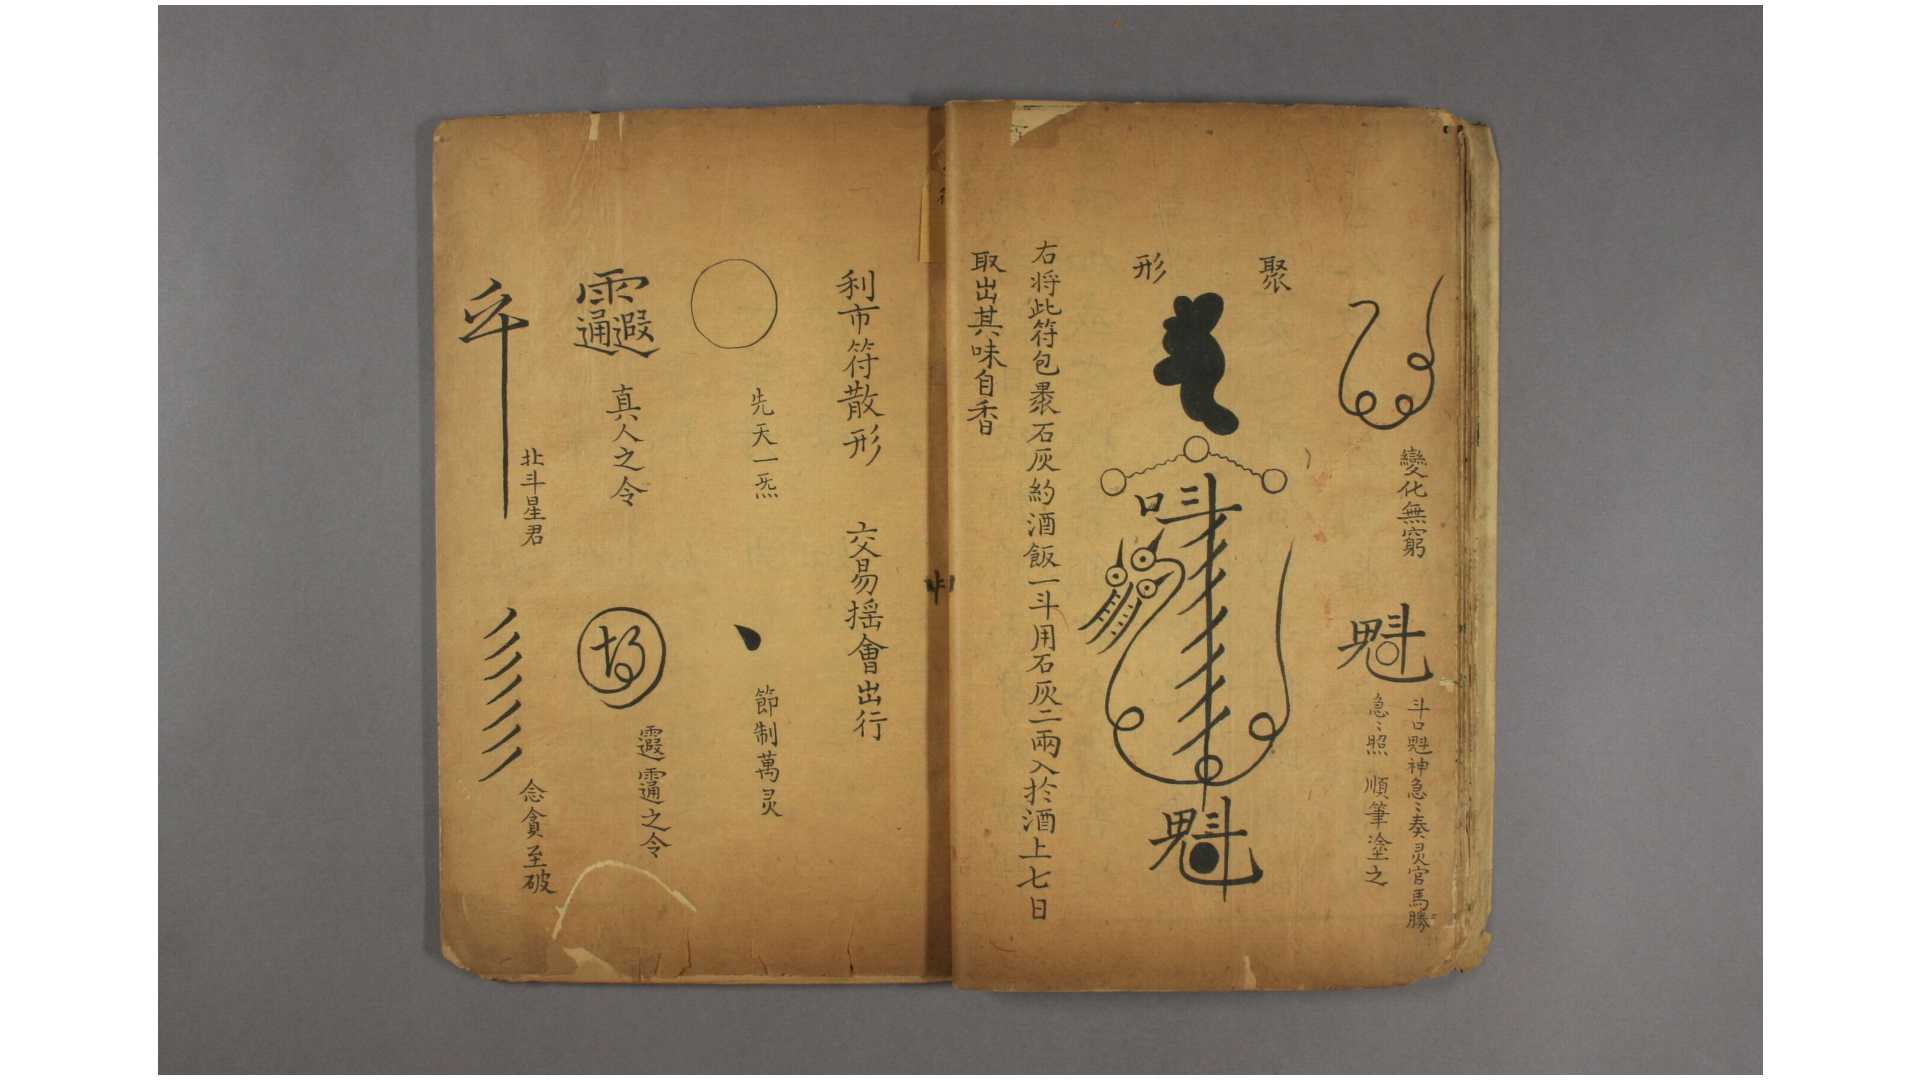 變化無窮
魁
斗口魁神急〻奏灵官馬勝
急〻照 順筆塗之
聚形
魁
右将此符包褁石灰約酒飯一斗用石灰二兩入於酒上七日
取出其味自香
利市符散形 交易揺會出行
先天一炁
節制萬灵
真人之令
之令
北斗星君
念貪至破